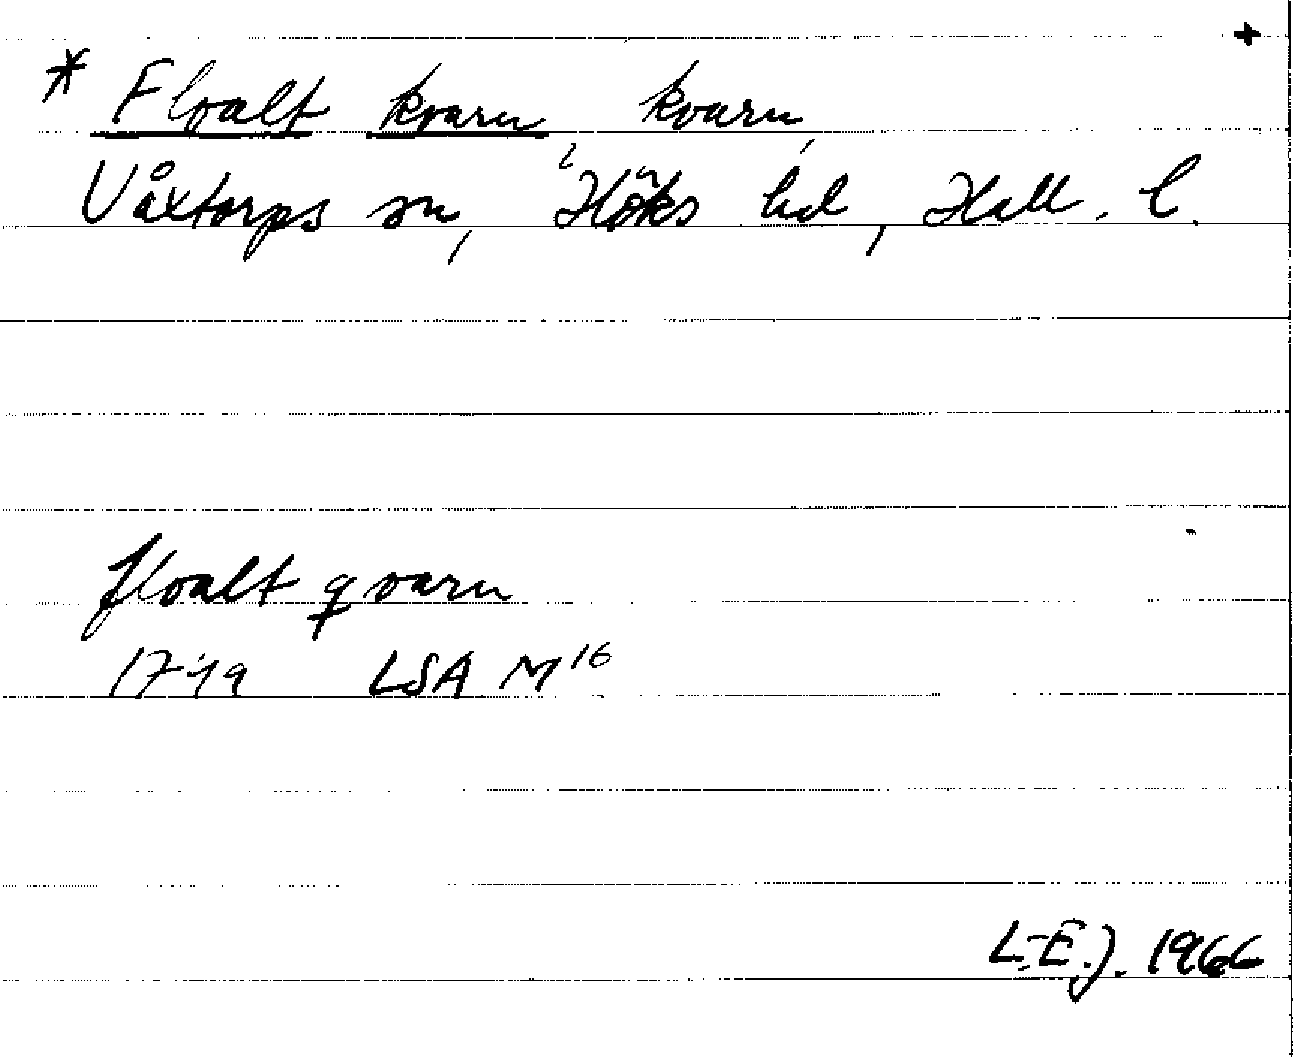 +
* Floalt kvarn kvarn,
Våxtorps sn, Höks hd, Hall. l.
floalt qvarn
1749 LSA M16
L-E.J. 1966